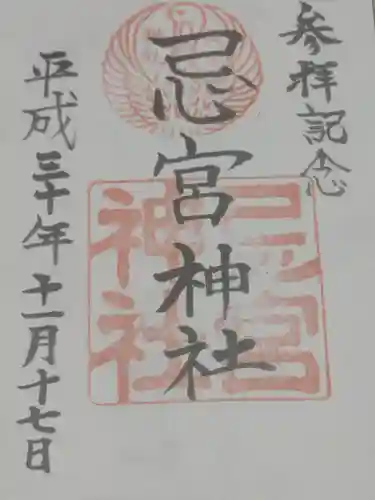 参拝記念
忌宮神社
忌宮神社
平成三十年十一月十七日